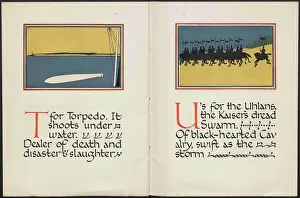 T for Torpedo. It
shoots under
water.
Dealer of death and
disaster & slaughter.
U's for the Uhlans,
the Kaiser's dread
Swarm,
Of black-hearted Cav
alry, swift as the
storm